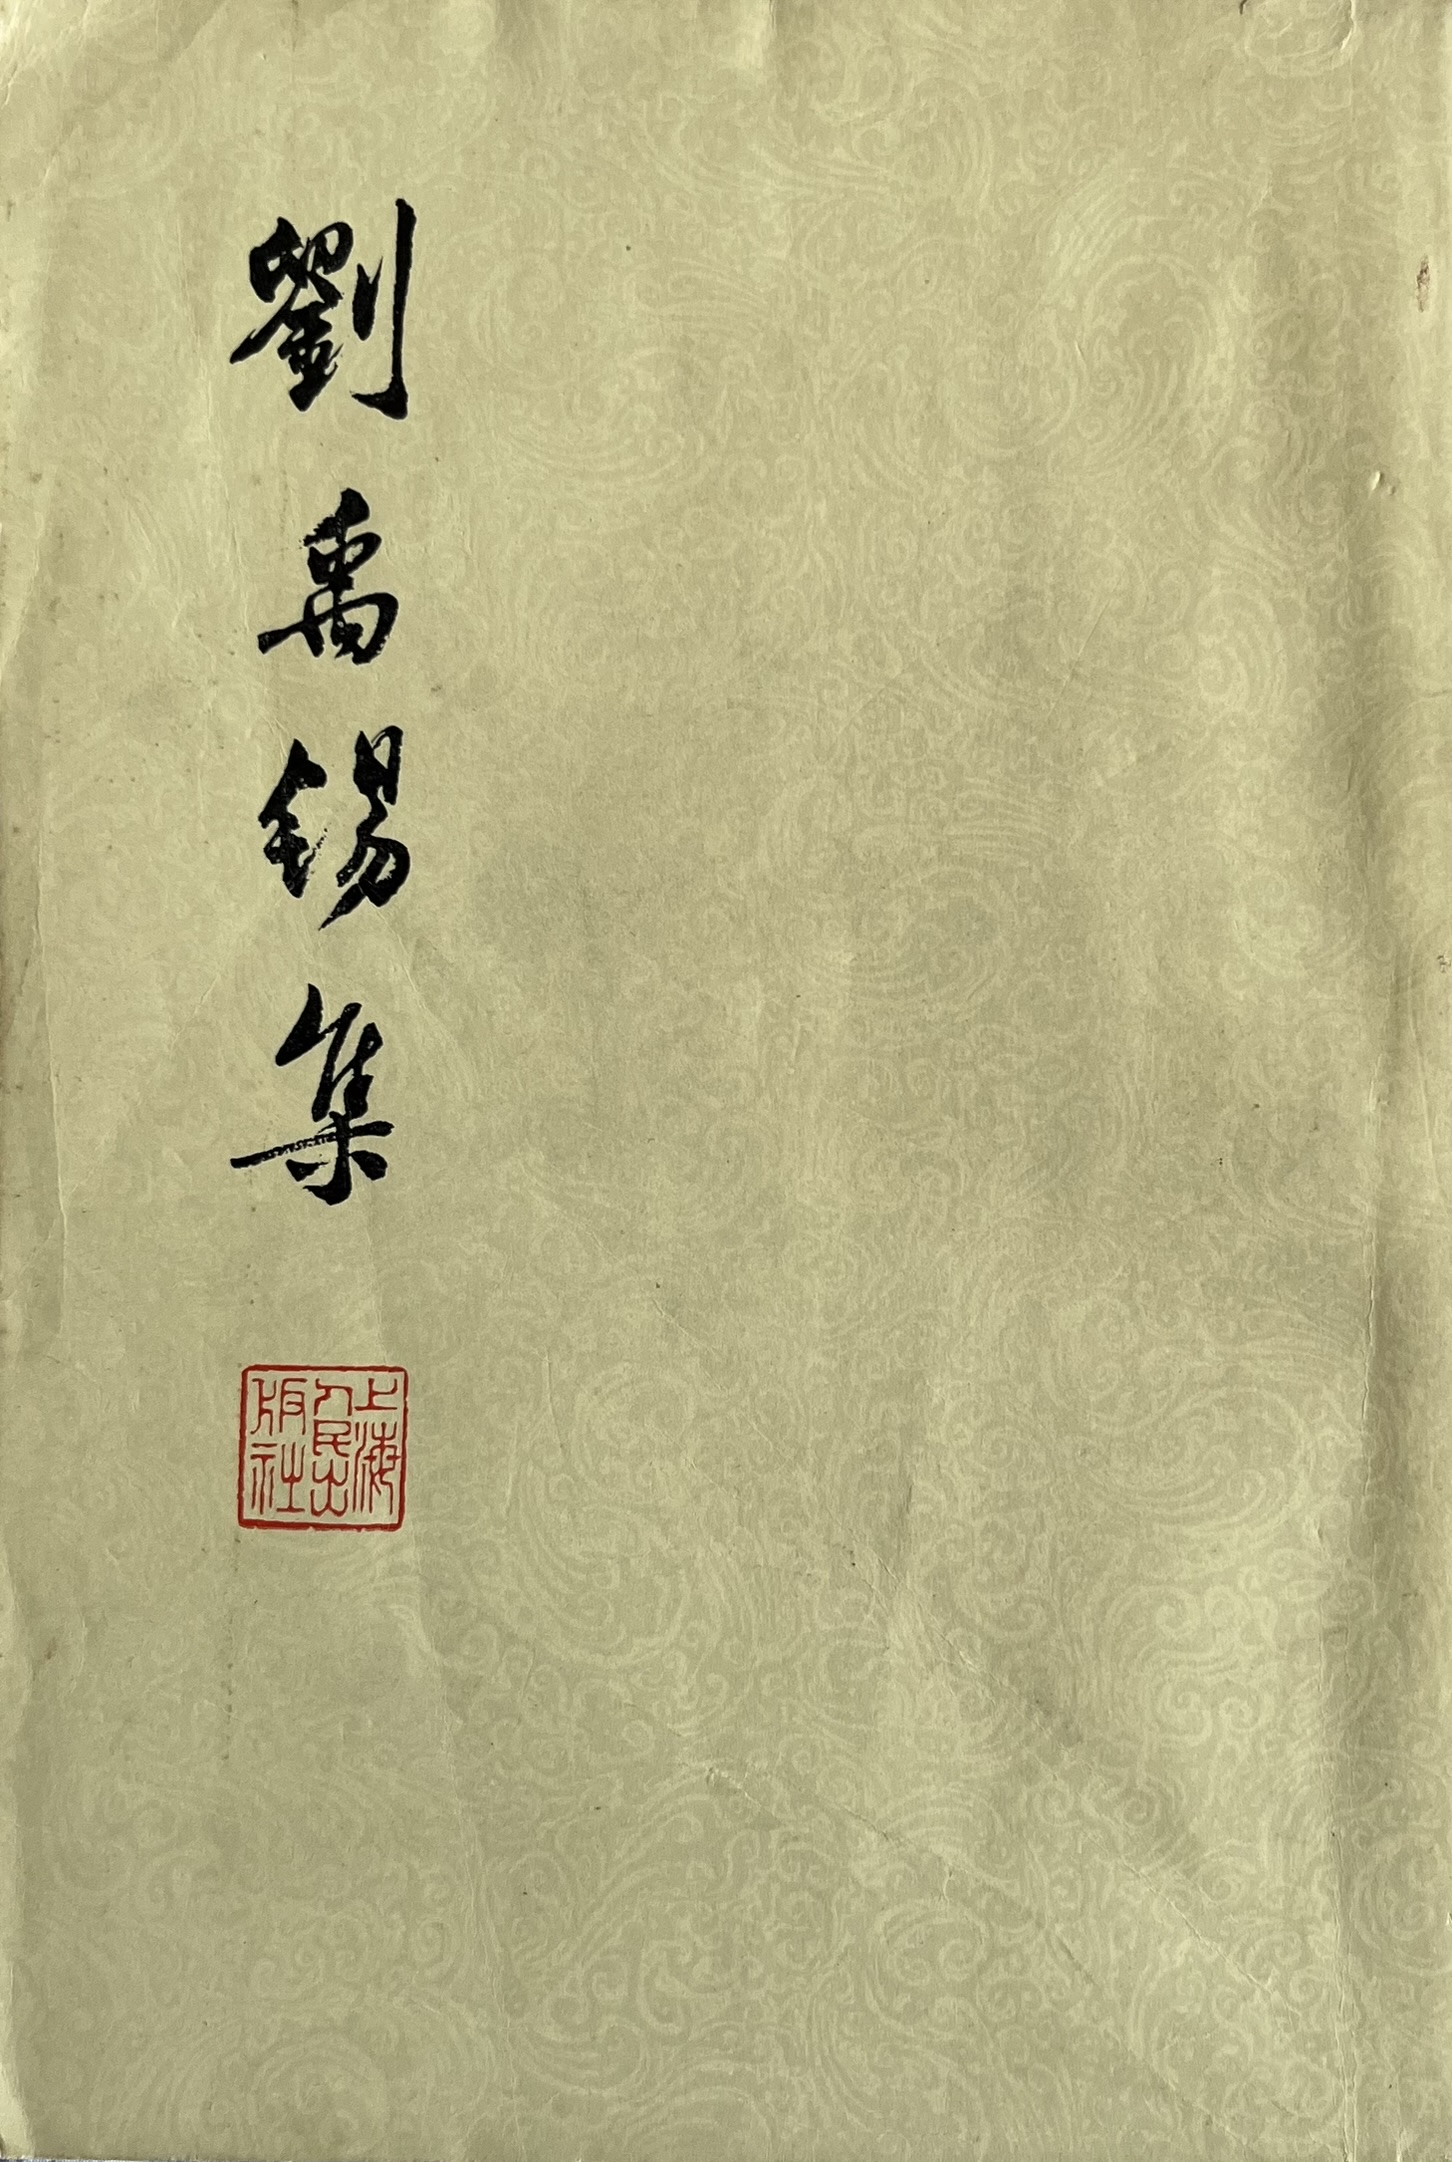 劉禹錫集
上海
人民出
版社